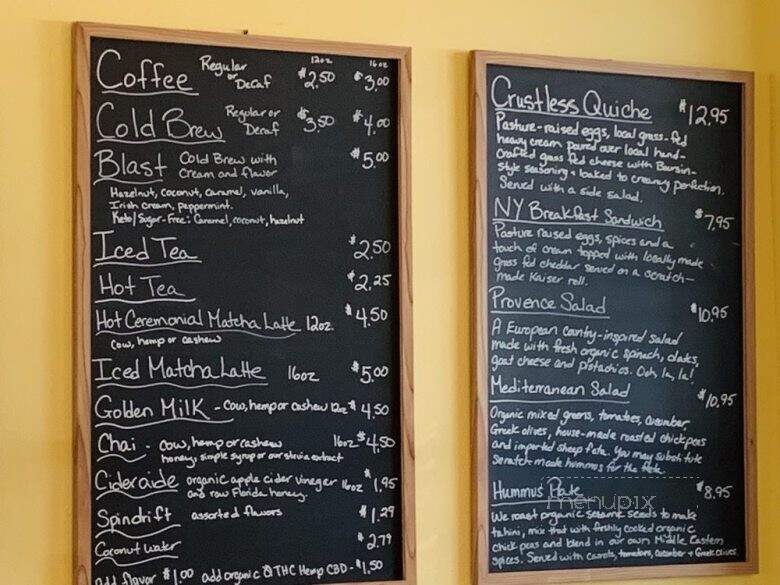 12oz 16oz
Coffee Regular or Decaf $2.50 $3.00
Cold Brew Regular or Decaf $3.50 $4.00
Blast Cold Brew with $5.00
cream and flavor
Hazelnut, coconut, caramel, vanilla,
Irish cream, peppermint.
Keto/Sugar-Free: Caramel, coconut, hazelnut
Iced Tea $2.50
Hot Tea $2.25
Hot Ceremonial Matcha Latte 12oz. $4.50
cow, hemp or cashew
Iced Matcha Latte 16oz $5.00
Golden Milk - cow, hemp or cashew 12oz $4.50
Chai - cow, hemp or cashew 16oz $4.50
honey, simple syrup or our stevia extract
Cideraide organic apple cider vinegar 16oz $1.95
and raw Florida honey.
Spindrift assorted flavors $1.29
Coconut water $2.79
add flavor $1.00 add organic 0 THC Hemp CBD - $1.50
Crustless Quiche $12.95
Pasture-raised eggs, local grass-fed
heavy cream poured over local hand-
crafted grass fed cheese with Boursin-
style seasoning + baked to creamy perfection.
Served with a side salad.
NY Breakfast Sandwich $7.95
Pasture raised eggs, spices and a
touch of cream topped with locally made
grass fed cheddar served on a scratch-
made Kaiser roll.
Provence Salad $10.95
A European country-inspired salad
made with fresh organic spinach, dates,
goat cheese and pistachios. Ooh la, la!
Mediterranean Salad $10.95
Organic mixed greens, tomatoes, cucumber,
Greek olives, house-made roasted chickpeas
and imported sheep feta. You may substitute
scratch made hummus for the feta.
Hummus Plate $8.95
menupix
We roast organic sesame seeds to make
tahini, mix that with freshly cooked organic
chick peas and blend in our own Middle Eastern
spices. Served with carrots, tomatoes, cucumber + Greek olives.